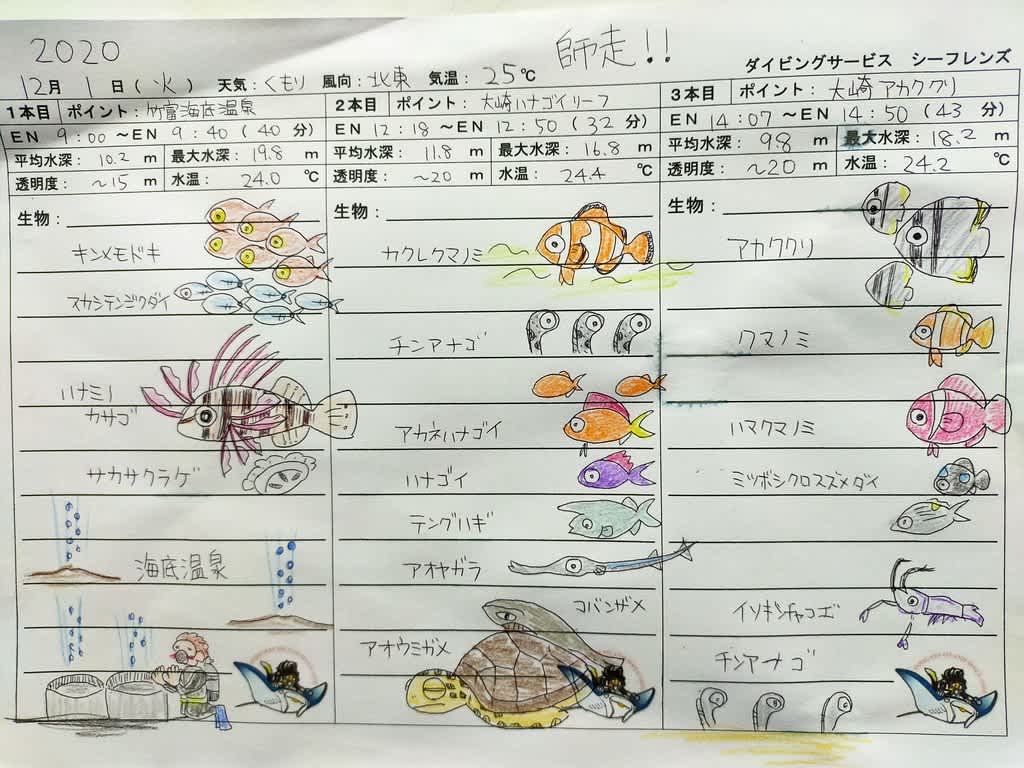 2020
師走!!
ダイビングサービス シーフレンズ
12月 1日(火) 天気:くもり 風向:北東 気温:25℃
1本目 ポイント:竹富海底温泉
EN 9:00 ~EN 9:40 (40 分)
平均水深: 10.2 m 最大水深: 19.8 m
透明度: ~15 m 水温: 24.0 ℃
生物:
キンメモドキ
スカシテンジクダイ
ハナミノ
カサゴ
サカサクラゲ
海底温泉
2本目 ポイント:大崎ハナゴイリーフ
EN 12:18 ~EN 12:50 (32 分)
平均水深: 11.8 m 最大水深: 16.8 m
透明度: ~20 m 水温: 24.4 ℃
生物:
カクレクマノミ
チンアナゴ
アカネハナゴイ
ハナゴイ
テングハギ
アオヤガラ
コバンザメ
アオウミガメ
3本目 ポイント:大崎 アカククリ
EN 14:07 ~EN 14:50 (43 分)
平均水深: 9.8 m 最大水深: 18.2 m
透明度: ~20 m 水温: 24.2 ℃
生物:
アカククリ
クマノミ
ハマクマノミ
ミツボシクロスズメダイ
イソギンチャクエビ
チンアナゴ